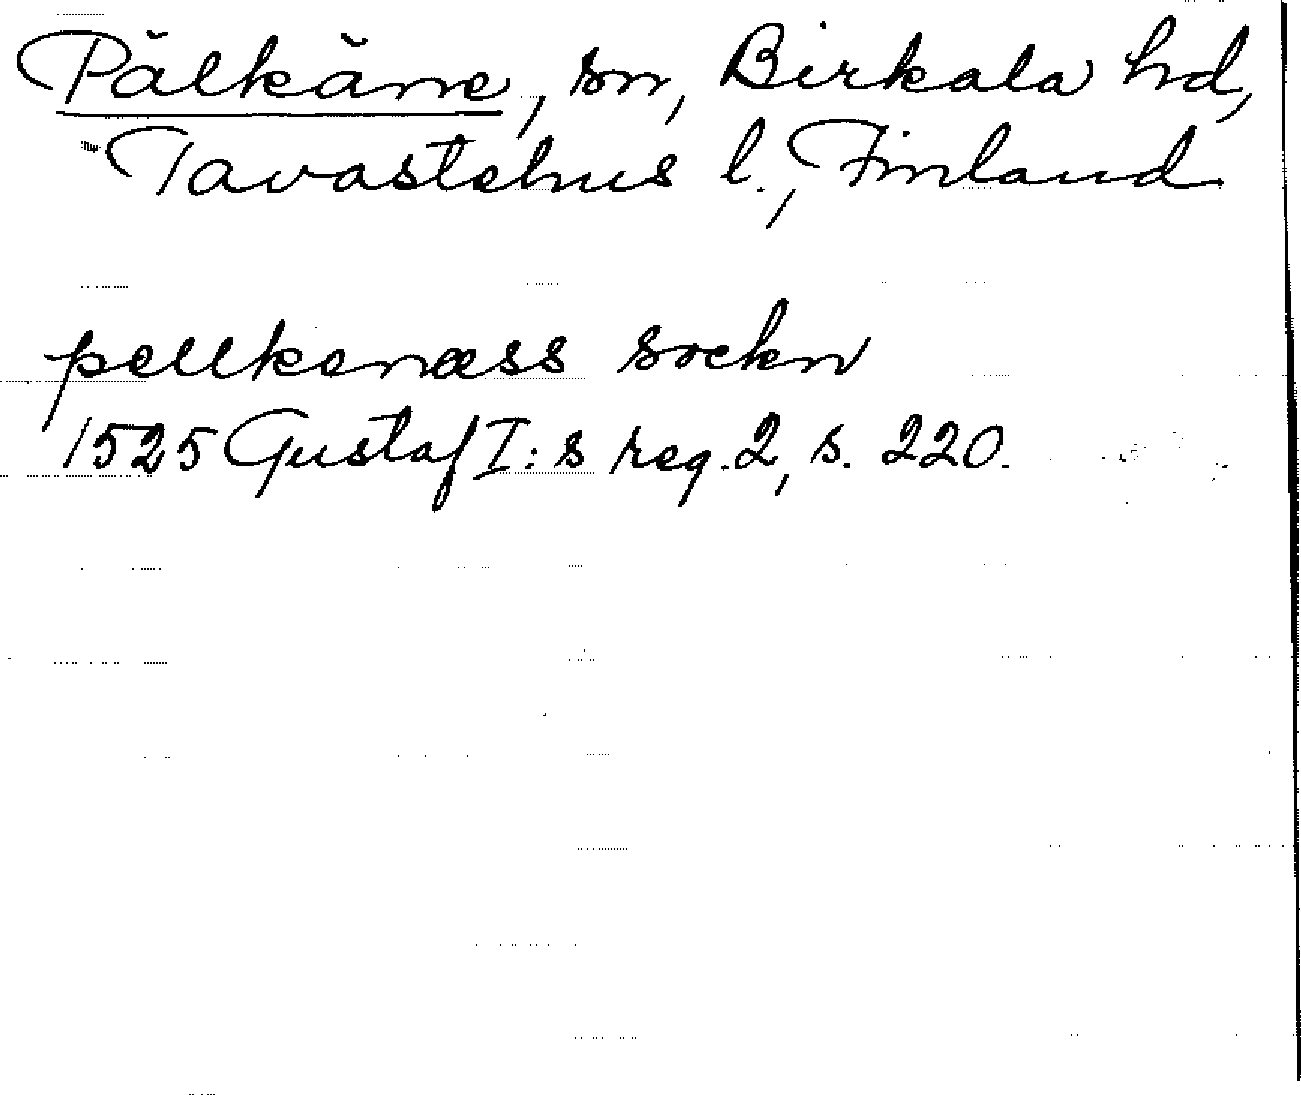 Pälkäne, sn, Birkala hd,
Tavastehus l., Finland
pellkenæss sockn
1525 Gustaf I:s reg. 2, s. 220.